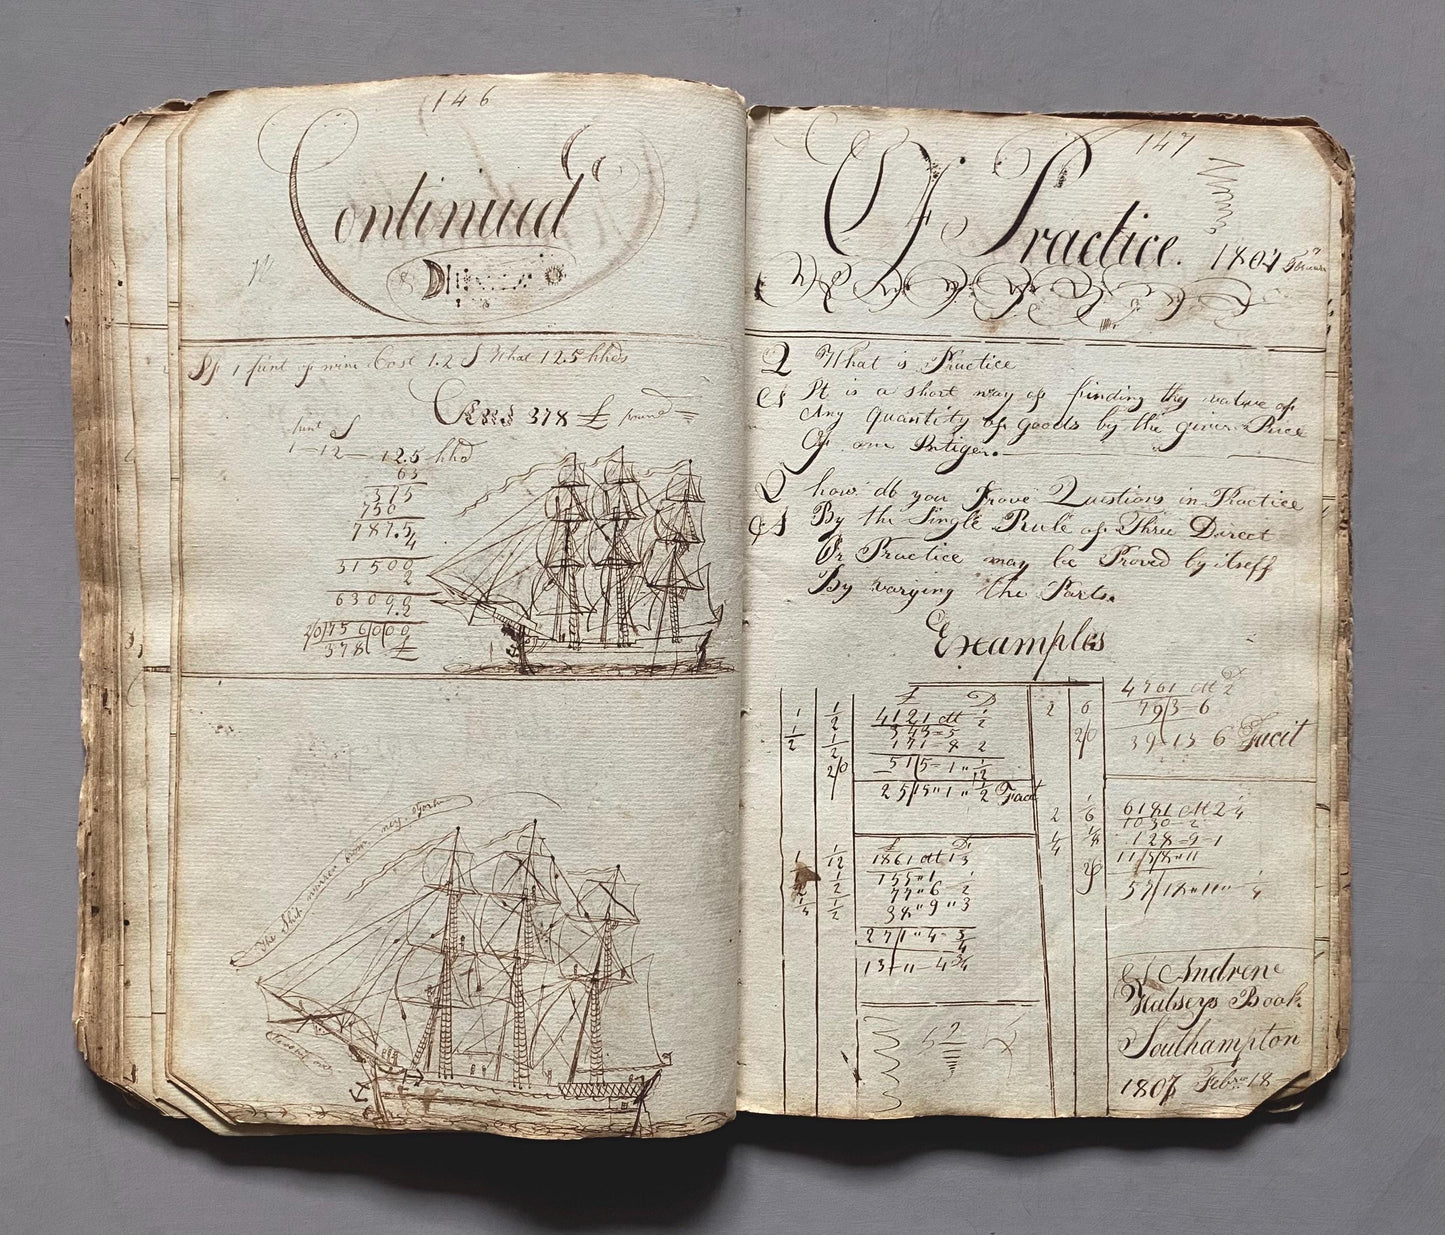 146
Continued
If 1 pint of wine Cost 1.2 S What 12.5 hhds
Ans 378 £
pint S
1 — 12 — 12.5 hhd
63
375
756
787.5
4
31500
2
6300
8
2|0|756|00
378 £
The Ship
147
Of Practice.
1807
Q What is Practice
A It is a short way of finding the value of
Any Quantity of goods by the given Price
Of one Intiger.
Q how do you Prove Questions in Practice
A By the Single Rule of Three Direct
Or Practice may be Proved by itself
By varying the Parts.
Examples
£ D
1 1/2 4121 at 1/2
1/2 1/2 343=5
2/0 171-8 2
51|5-1" 1/2
25|15"1" 1/2 Fact
1861 at 13
1 1/12 155"1
1/2 77"6 2
1/4 1/2 38"9"3
27|1"4-3/4
13-11-4 3/4
2 6 4761 at 2
2/0 79|3-6
39-13 6 Facit
2 1/6 6181 at 2 1/4
1/4 1/8 1030-2
128-9-1
11|5|8"11
57|18"11" 1/4
Andrene
Halseys Book
Southampton
1807 Febry 18